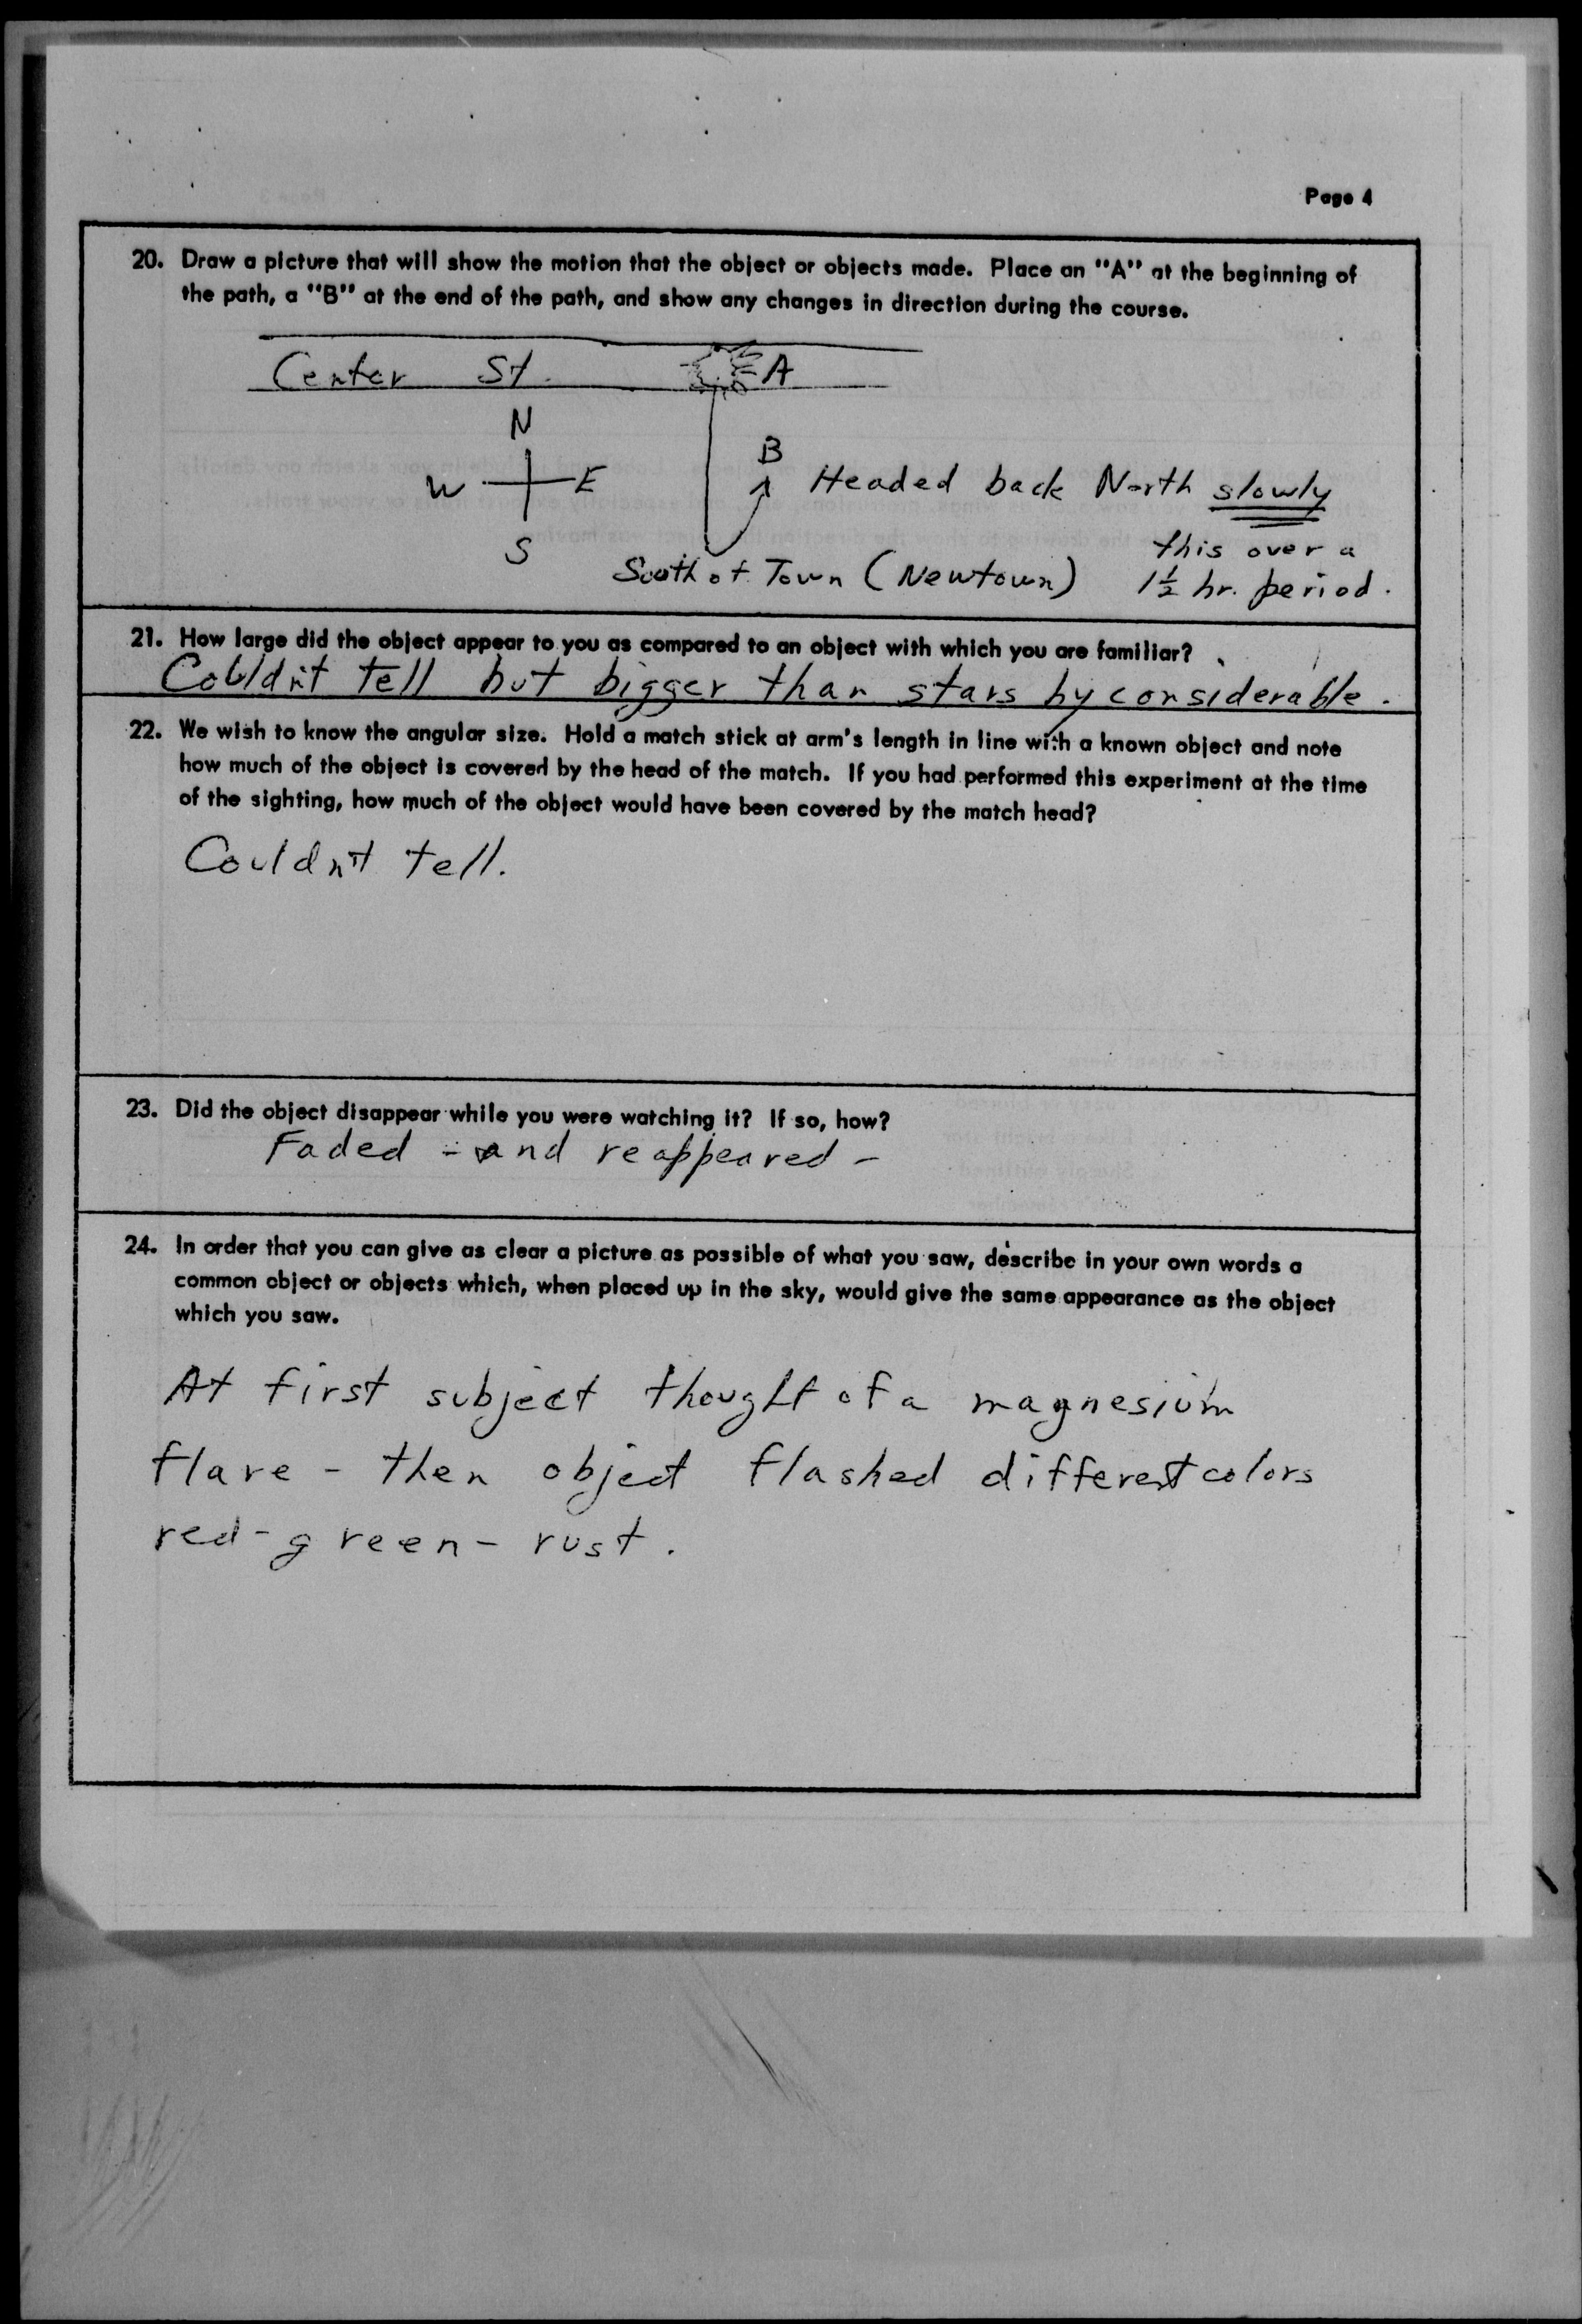 Page 4
20. Draw a picture that will show the motion that the object or objects made. Place an "A" at the beginning of
the path, a "B" at the end of the path, and show any changes in direction during the course.
Center St. A
N
B
W E Headed back North slowly
S this over a
South of Town (Newtown) 1½ hr. period.
21. How large did the object appear to you as compared to an object with which you are familiar?
Couldn't tell but bigger than stars by considerable.
22. We wish to know the angular size. Hold a match stick at arm's length in line with a known object and note
how much of the object is covered by the head of the match. If you had performed this experiment at the time
of the sighting, how much of the object would have been covered by the match head?
Couldn't tell.
23. Did the object disappear while you were watching it? If so, how?
Faded - and reappeared -
24. In order that you can give as clear a picture as possible of what you saw, describe in your own words a
common object or objects which, when placed up in the sky, would give the same appearance as the object
which you saw.
At first subject thought of a magnesium
flare - then object flashed different colors
red - green - rust.